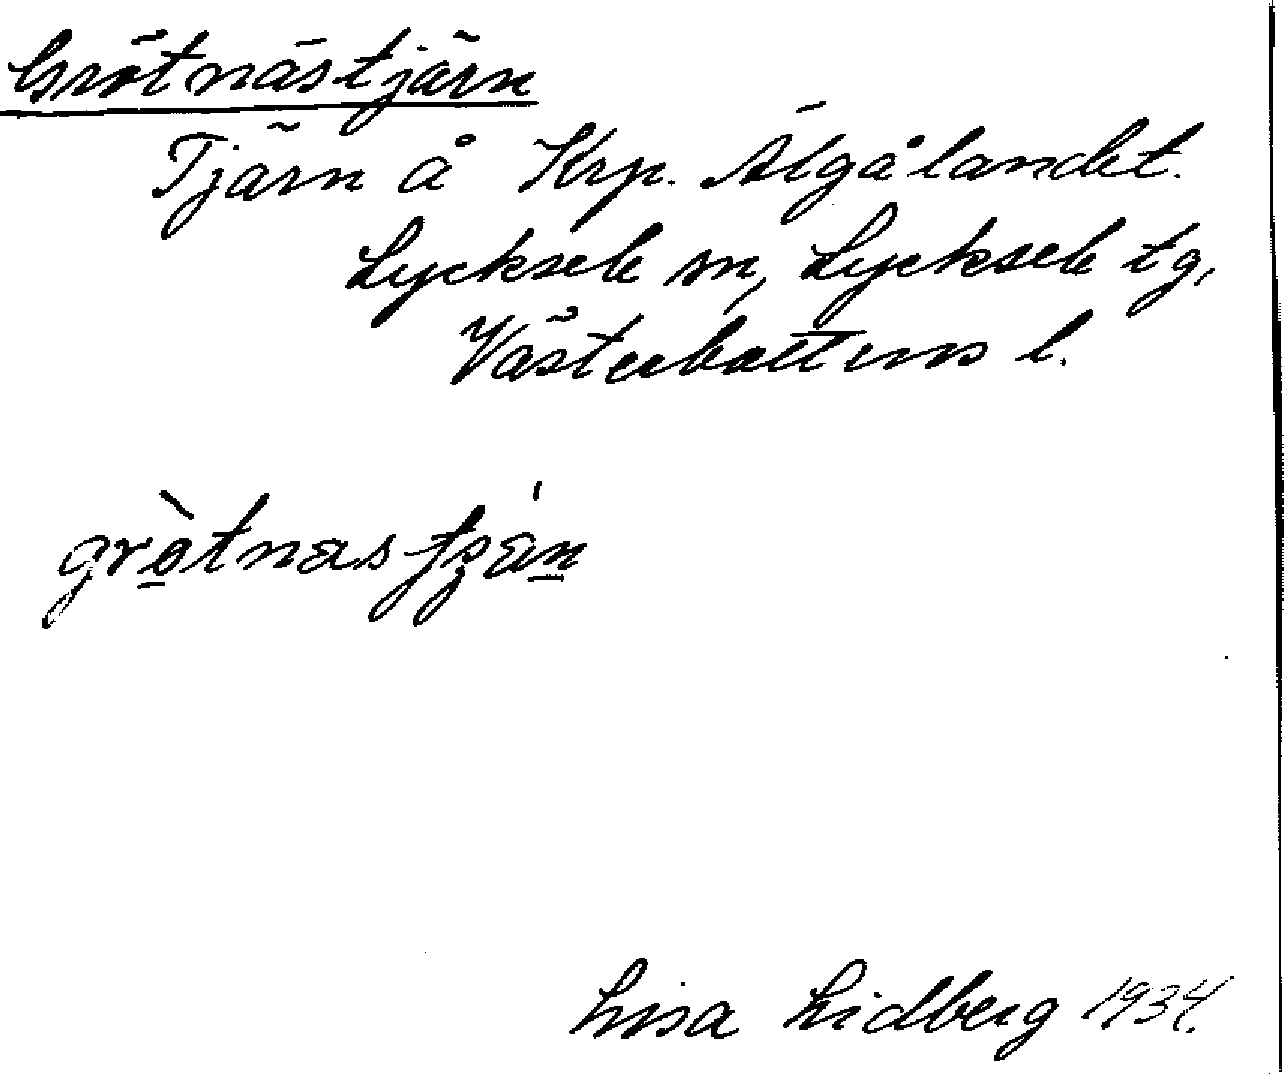 Grötnästjärn
Tjärn å Krp. Älgålandet.
Lycksele sn, Lycksele tg,
Västerbottens l.
Lisa Lidberg 1934.